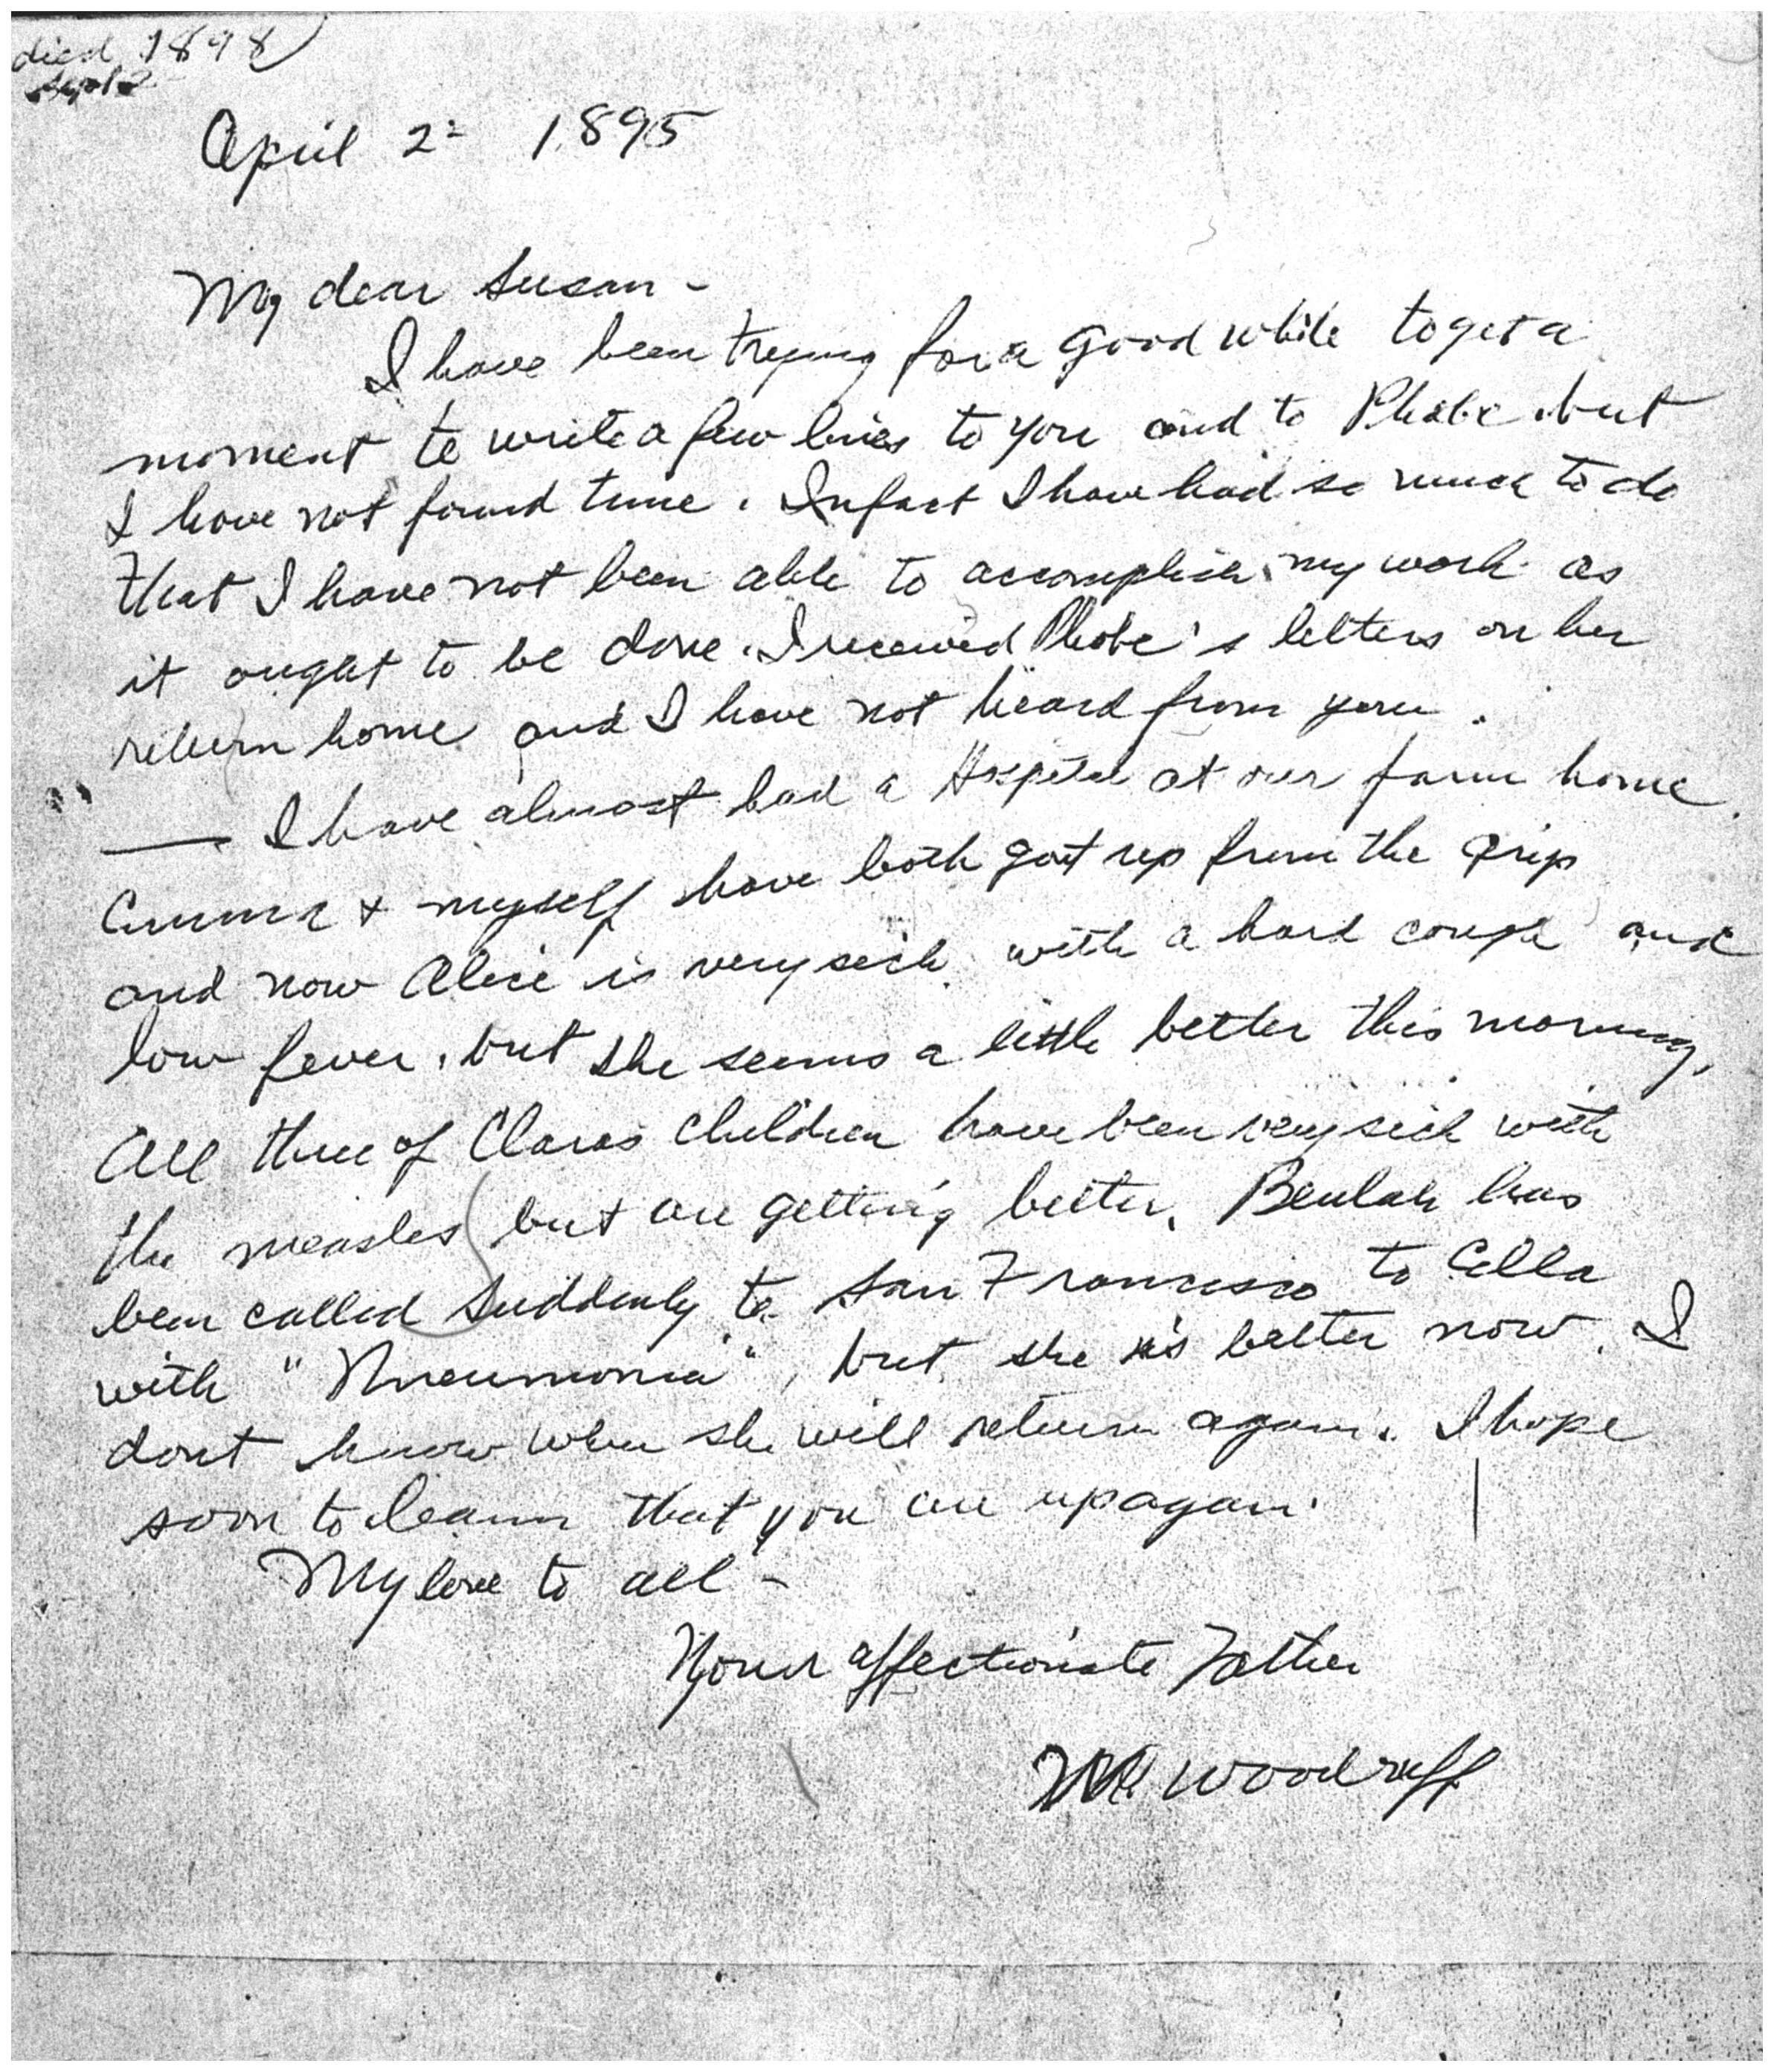 died 1898
Sept 2
April 2= 1895
My dear Susan -
I have been trying for a good while to get a
moment to write a few lines to you and to Phebe but
I have not found time. In fact I have had so much to do
that I have not been able to accomplish my work as
it ought to be done. I received Phebe's letters on her
return home and I have not heard from you.
— I have almost had a Hospital at our farm home.
Emma & myself have both got up from the grip
and now Alice is very sick with a hard cough and
low fever, but she seems a little better this morning.
All three of Claras children have been very sick with
the measles but are getting better. Beulah has
been called suddenly to San Francisco to Ella
with "Pneumonia", but she is better now. I
dont know when she will return again. I hope
soon to learn that you are up again.
My love to all -
Your affectionate Father
W Woodruff